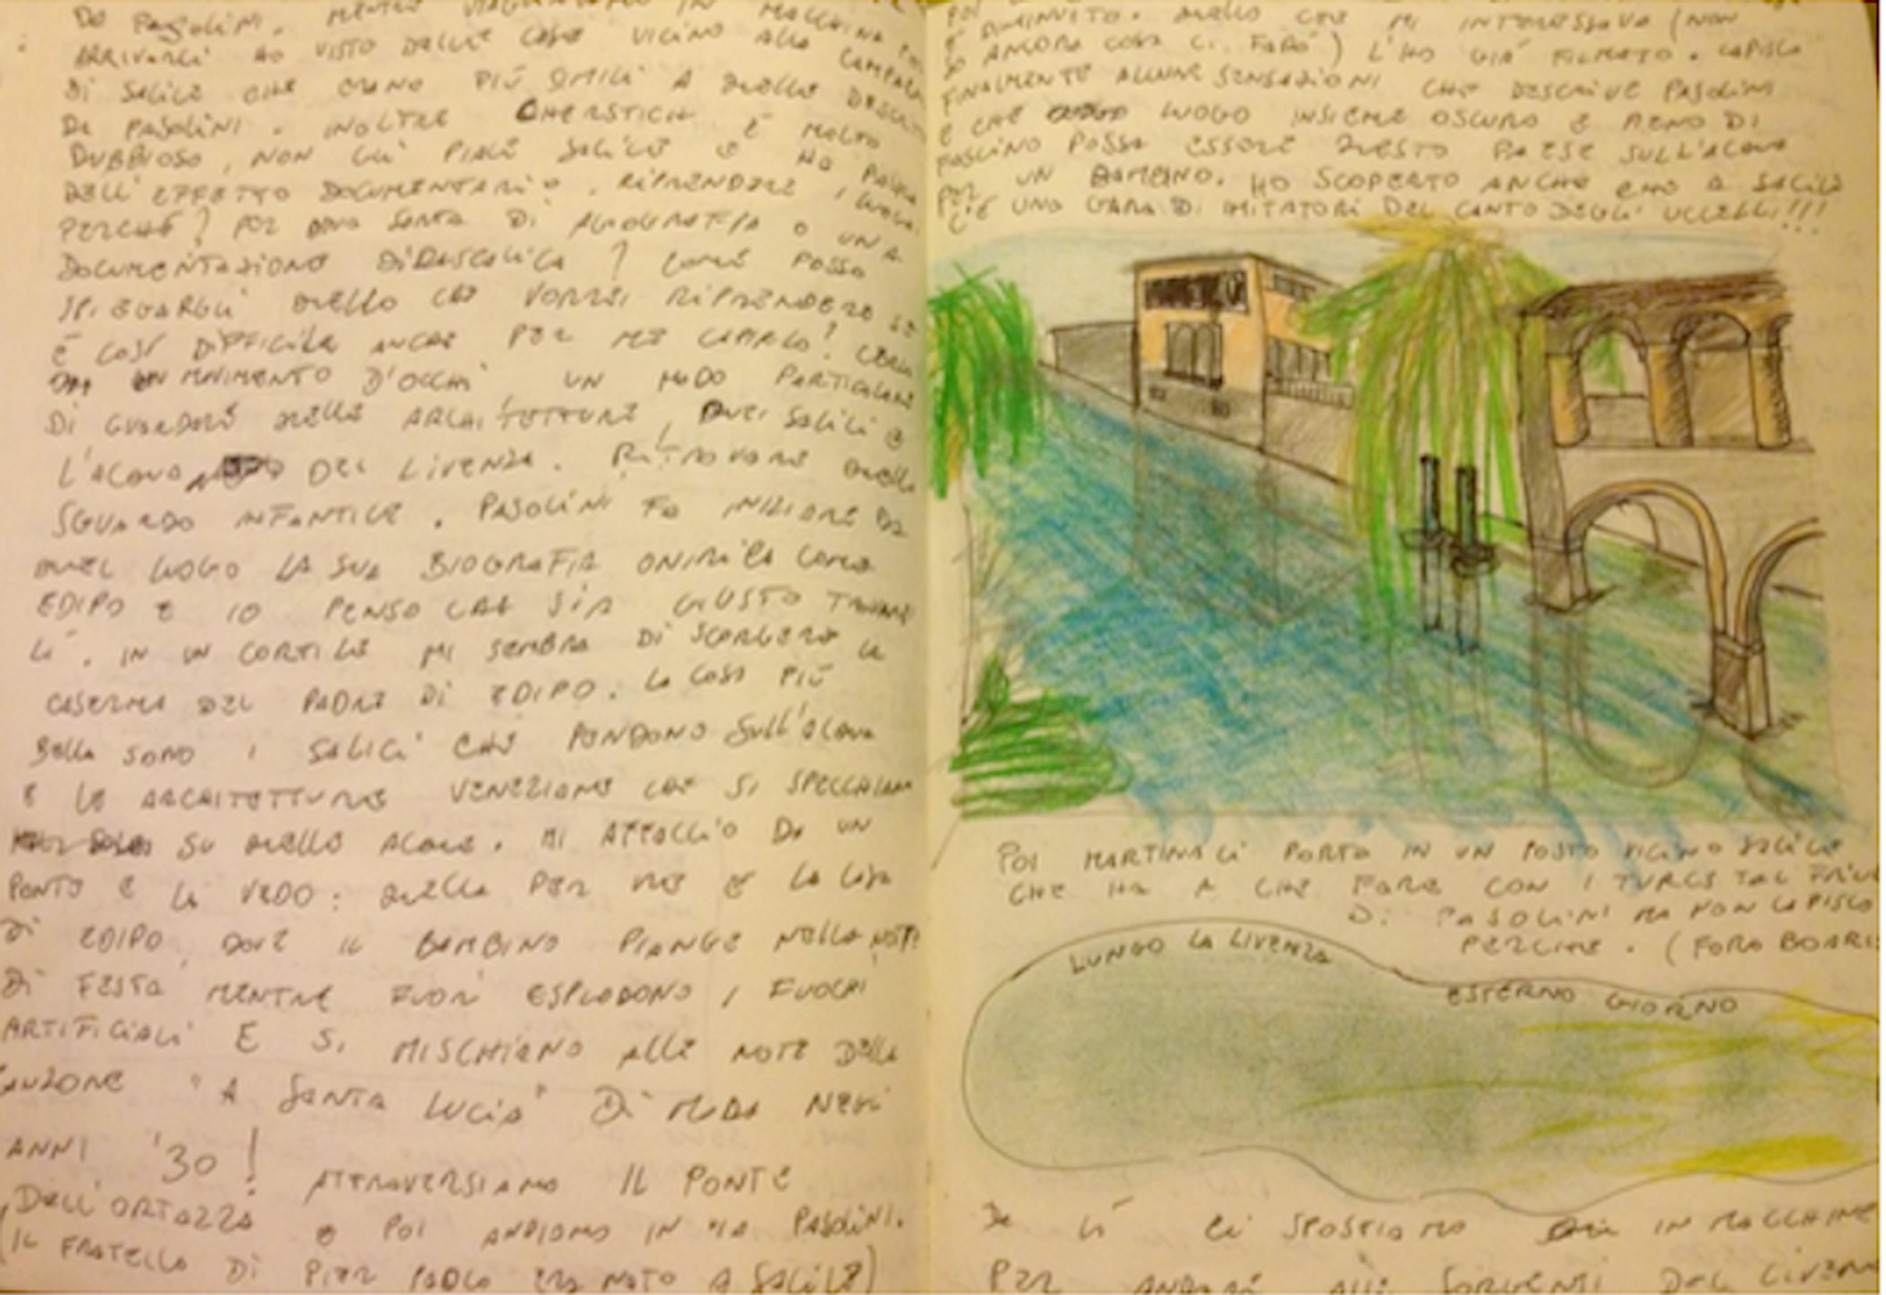 DA PASOLINI. MENTRE VIAGGIAVAMO IN MACCHINA PER
ARRIVARCI HO VISTO DELLE CASE VICINO ALLA CAMPAGNA
DI SACILE CHE ERANO PIÙ SIMILI A QUELLO DESCRITTO
DA PASOLINI. INOLTRE CHERSTICH È MOLTO
DUBBIOSO, NON GLI PIACE SACILE E HA PAURA
DELL'EFFETTO DOCUMENTARIO. RIPRENDERE I LUOGHI
PERCHÉ? PER UNA SORTA DI AGIOGRAFIA O UNA
DOCUMENTAZIONE DIDASCALICA? COME POSSO
SPIEGARGLI QUELLO CHE VORREI RIPRENDERE SE
È COSÌ DIFFICILE ANCHE PER ME CAPIRLO? CERCO
UN MOVIMENTO D'OCCHI UN MODO PARTICOLARE
DI GUARDARE QUELLE ARCHITETTURE, QUEI SALICI E
L'ACQUA DEL LIVENZA. RITROVARE QUELLO
SGUARDO INFANTILE. PASOLINI FA INIZIARE DA
QUEL LUOGO LA SUA BIOGRAFIA ONIRICA COME
EDIPO E IO PENSO CHE SIA GIUSTO TORNARE
LÌ. IN UN CORTILE MI SEMBRA DI SCORGERE LA
CASERMA DEL PADRE DI EDIPO. LA COSA PIÙ
BELLA SONO I SALICI CHE PENDONO SULL'ACQUA
E LE ARCHITETTURE VENEZIANE CHE SI SPECCHIANO
SU QUELLE ACQUE. MI AFFACCIO DA UN
PONTE E LA VEDO: QUELLA PER ME È LA CASA
DI EDIPO, DOVE IL BAMBINO PIANGE NELLA NOTTE
DI FESTA MENTRE FUORI ESPLODONO I FUOCHI
ARTIFICIALI E SI MISCHIANO ALLE NOTE DELLA
CANZONE "A SANTA LUCIA" DI MODA NEGLI
ANNI '30! ATTRAVERSIAMO IL PONTE
DELL'ORTAZZA E POI ANDIAMO IN VIA PASOLINI.
(IL FRATELLO DI PIER PAOLO ERA NATO A SACILE)
POI
È DIMINUITO. QUELLO CHE MI INTERESSAVA (NON
SO ANCORA COSA CI FARÒ) L'HO GIÀ FILMATO. CAPISCO
FINALMENTE ALCUNE SENSAZIONI CHE DESCRIVE PASOLINI
E CHE LUOGO INSIEME OSCURO E PIENO DI
FASCINO POSSA ESSERE QUESTO PAESE SULL'ACQUA
PER UN BAMBINO. HO SCOPERTO ANCHE CHE A SACILE
C'È UNA GARA DI IMITATORI DEL CANTO DEGLI UCCELLI!!!
POI MARTINA CI PORTA IN UN POSTO VICINO SACILE
CHE HA A CHE FARE CON I TURCS TAL FRIUL
DI PASOLINI MA NON CAPISCO
PERCHÉ. (FORO BOARIO
LUNGO LA LIVENZA
ESTERNO GIORNO
DA LÌ CI SPOSTIAMO IN MACCHINA
PER ANDARE ALLE SORGENTI DEL LIVENZA